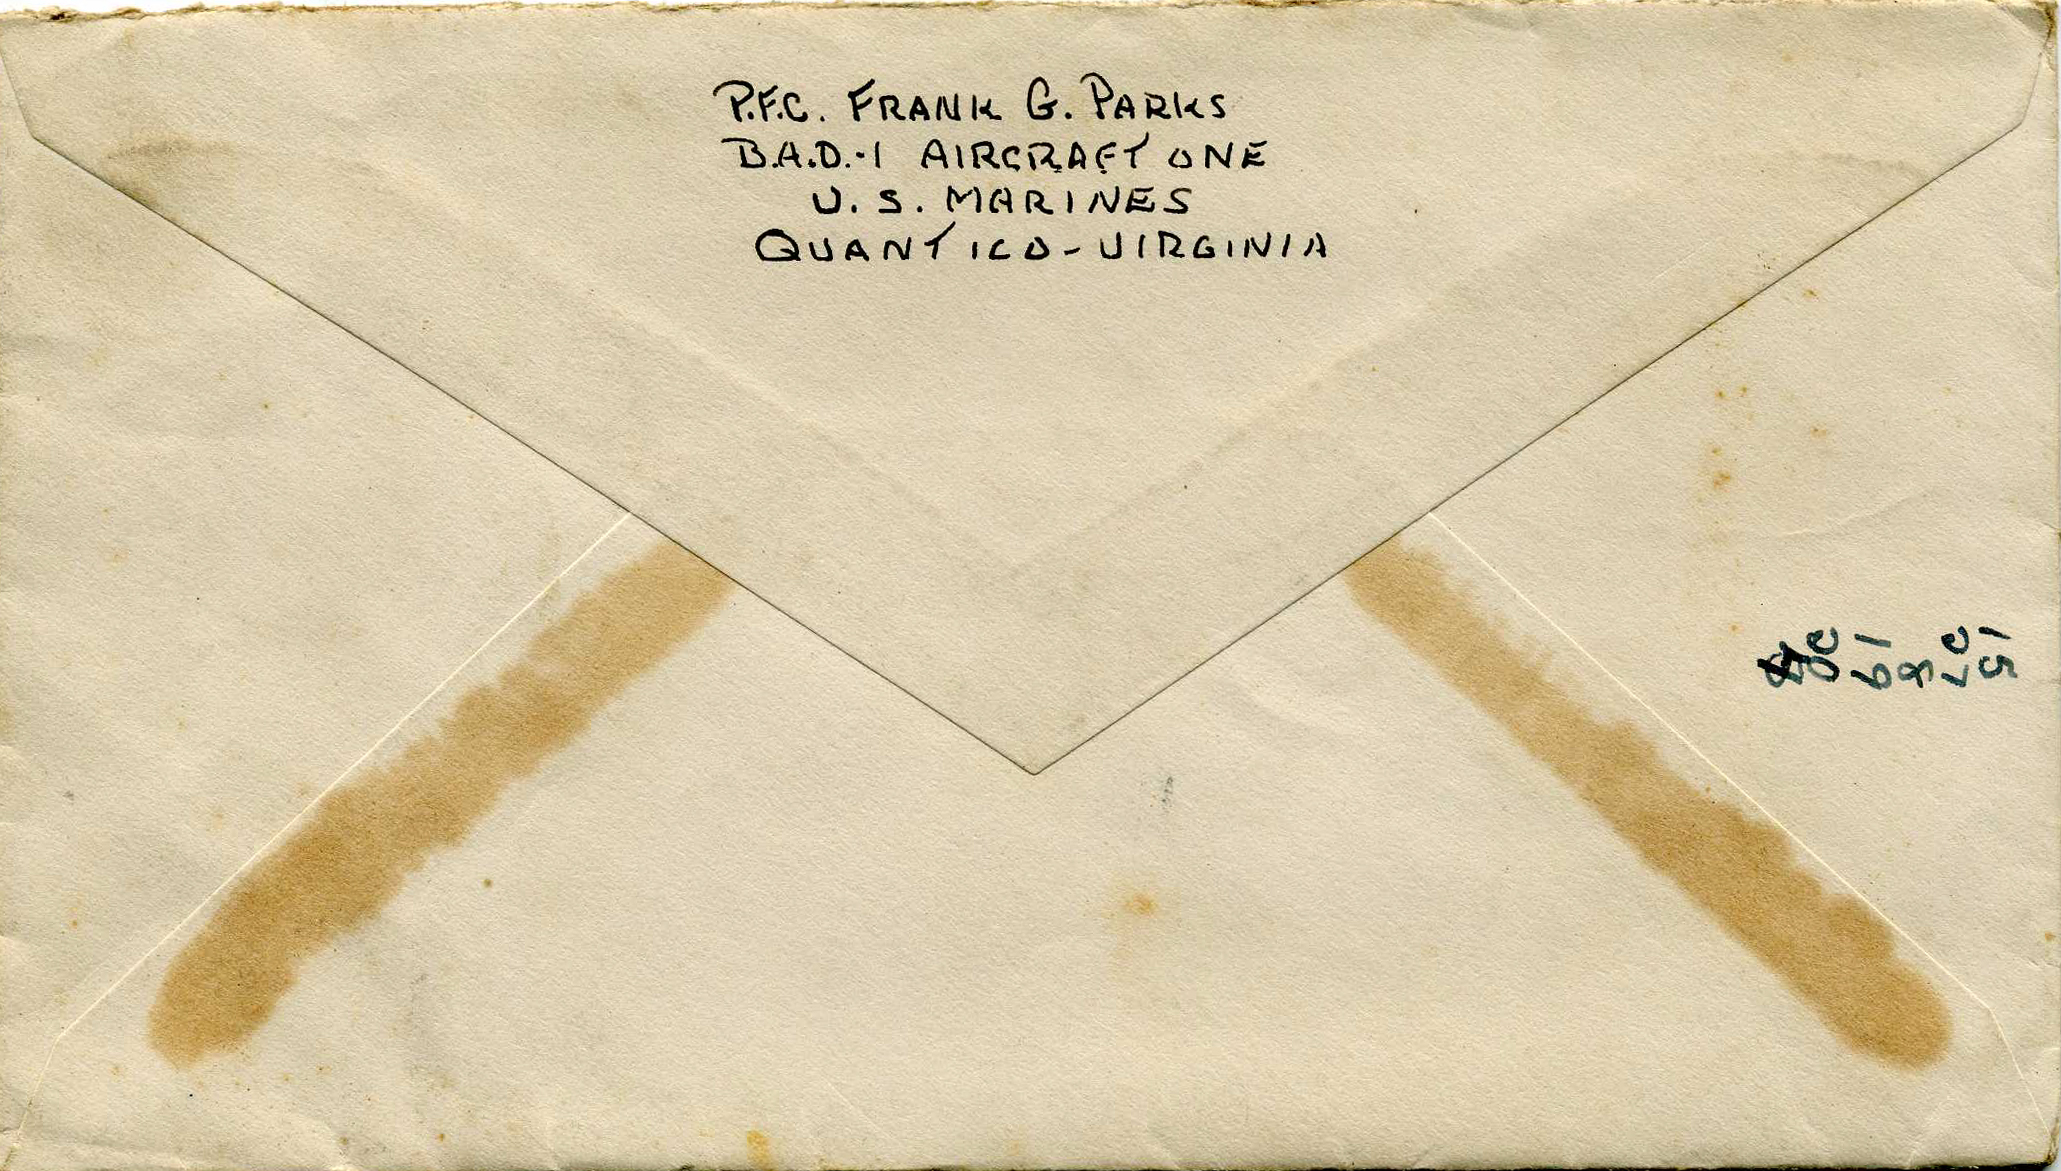 P.F.C. FRANK G. PARKS
B.A.D.-1 AIRCRAFT ONE
U. S. MARINES
QUANTICO - VIRGINIA